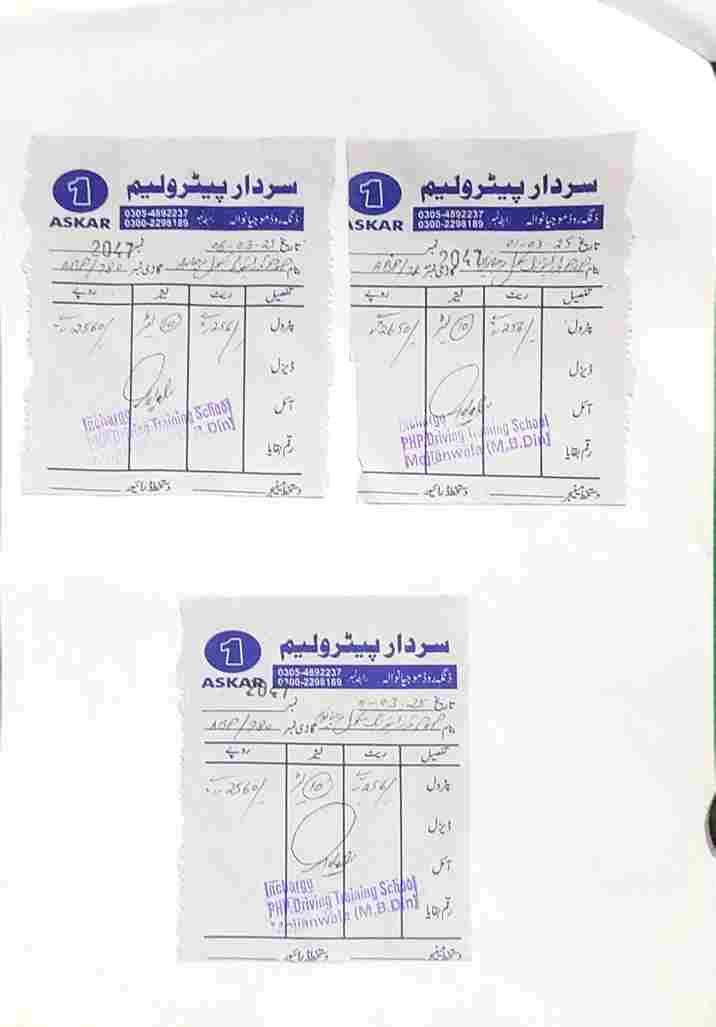 سردار پیٹرولیم
1
ASKAR
0305-4892237
0300-2298189
رابطہ نمبر
ڈنگہ روڈ موجیانوالہ
تاریخ 06-03-25 نمبر 2047
بنام گاڑی نمبر ABP/280
تفصیل ریٹ لیٹر روپے
پٹرول 256/ 10 لیٹر 2560/
ڈیزل
آئل
Incharge
PHP Driving Training School
رقم بقایا
دستخط مینیجر دستخط ڈرائیور
سردار پیٹرولیم
1
ASKAR
0305-4892237
0300-2298189
رابطہ نمبر
ڈنگہ روڈ موجیانوالہ
تاریخ 01-03-25 نمبر 2047
بنام گاڑی نمبر
تفصیل ریٹ لیٹر روپے
پٹرول 256/ 10 لیٹر
ڈیزل
آئل
Incharge
PHP Driving Training School
Mojianwala (M.B.Din)
رقم بقایا
دستخط مینیجر دستخط ڈرائیور
سردار پیٹرولیم
1
ASKAR
0305-4892237
0300-2298189
رابطہ نمبر
ڈنگہ روڈ موجیانوالہ
2047
تاریخ نمبر
بنام گاڑی نمبر ABP/280
تفصیل ریٹ لیٹر روپے
پٹرول 256/ 10 لیٹر 2560/
ڈیزل
آئل
Incharge
PHP Driving Training School
Mojianwala (M.B.Din)
رقم بقایا
دستخط مینیجر دستخط ڈرائیور